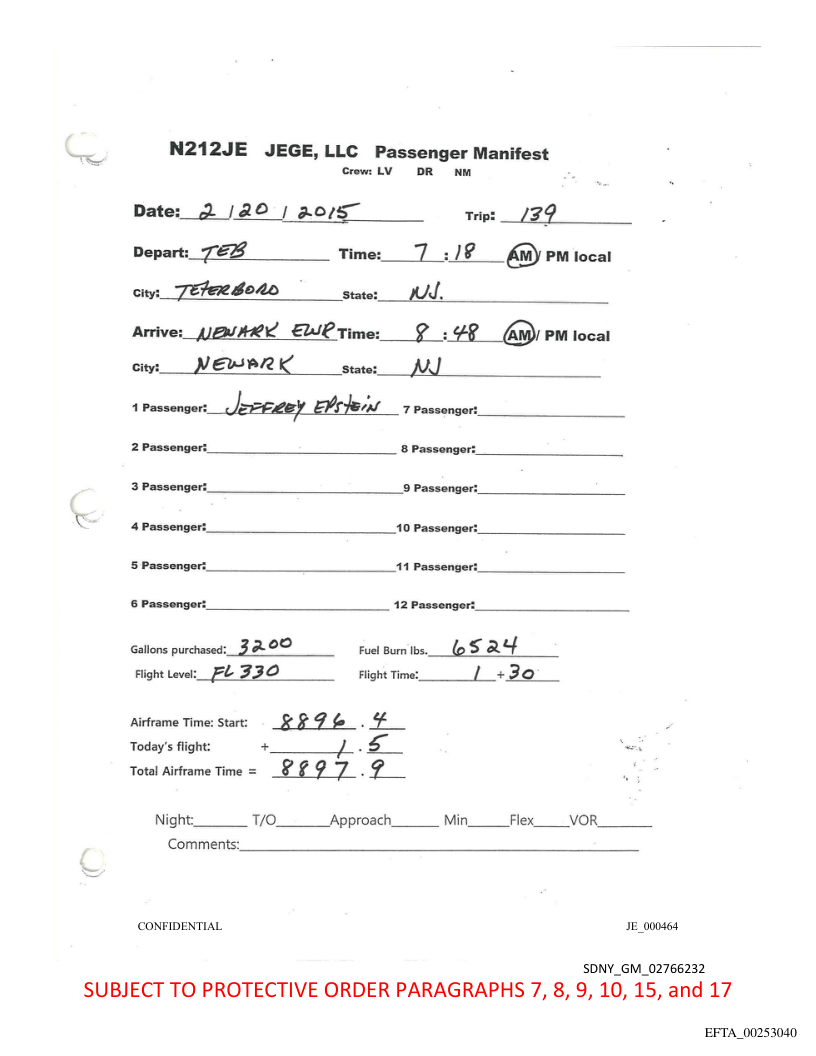 N212JE JEGE, LLC Passenger Manifest
Crew: LV DR NM
Date: 2 / 20 / 2015 Trip: 139
Depart: TEB Time: 7 : 18 AM/ PM local
City: TETERBORO State: NJ.
Arrive: NEWARK EWR Time: 8 : 48 AM/ PM local
City: NEWARK State: NJ
1 Passenger: JEFFREY EPSTEIN 7 Passenger:
2 Passenger: 8 Passenger:
3 Passenger: 9 Passenger:
4 Passenger: 10 Passenger:
5 Passenger: 11 Passenger:
6 Passenger: 12 Passenger:
Gallons purchased: 3200 Fuel Burn lbs. 6524
Flight Level: FL 330 Flight Time: 1 + 30
Airframe Time: Start: 8896 . 4
Today's flight: + 1 . 5
Total Airframe Time = 8897 . 9
Night: T/O Approach Min Flex VOR
Comments:
CONFIDENTIAL JE_000464
SDNY_GM_02766232
SUBJECT TO PROTECTIVE ORDER PARAGRAPHS 7, 8, 9, 10, 15, and 17
EFTA_00253040